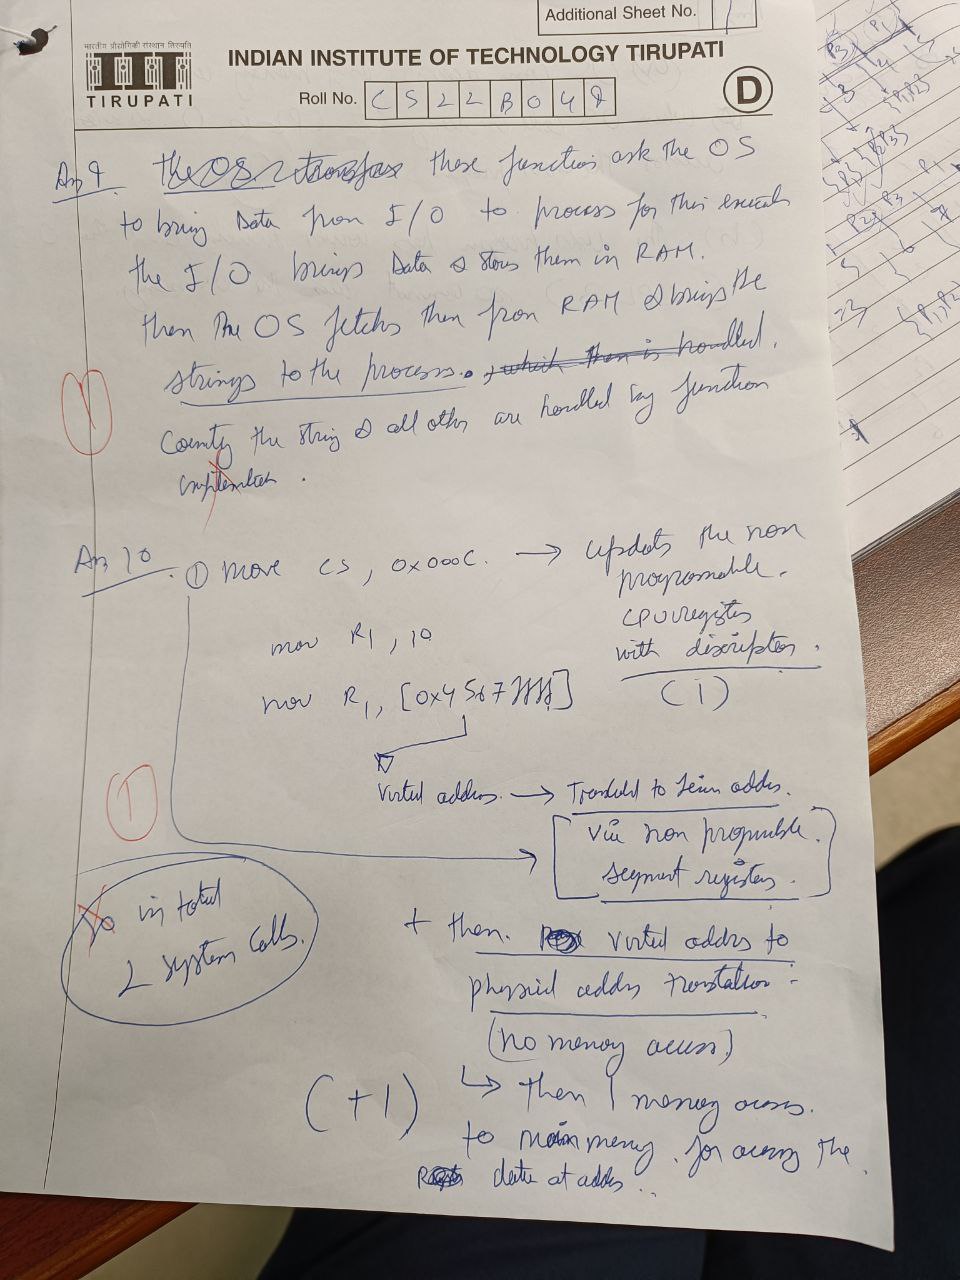 Additional Sheet No. 1
भारतीय प्रौद्योगिकी संस्थान तिरुपति
TIRUPATI
INDIAN INSTITUTE OF TECHNOLOGY TIRUPATI
Roll No. CS22B048
D
Ans 9 The OS transfers these function ask the OS
to bring Data from I/O to process for this
the I/O brings Data & stores them in RAM.
then the OS fetchs then from RAM & brings the
strings to the process. , which then is handled.
the string & all othr are handled by function
1
Ans 10
① move CS, 0x000C. → updates the non
programable.
CPU registers
with discriptor.
(1)
mov R1, 10
mov R1, [0x4567]
Virtul address. → to addrs.
via non
segment registers.
1
So in total
2 system calls.
+ then. virtul addrs to
physicl addrs translation.
(no memory acces)
(+1)
↳ then 1 memory acces.
to main memory for the
data at addrs..